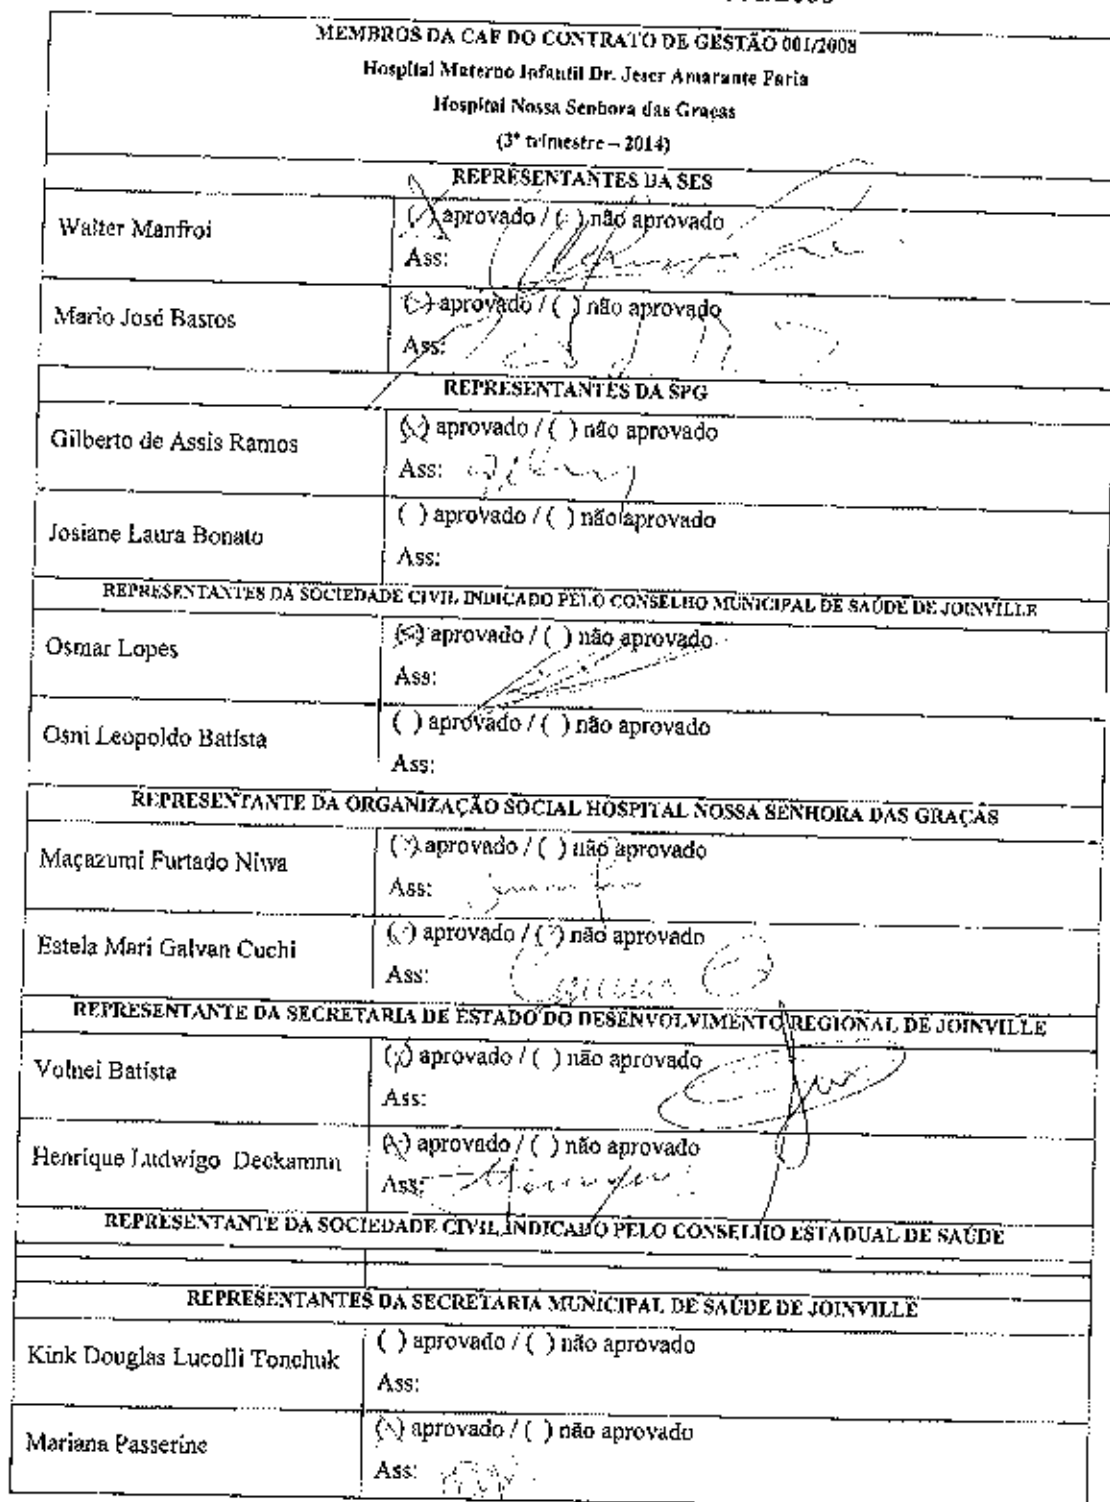 MEMBROS DA CAF DO CONTRATO DE GESTÃO 001/2008
Hospital Materno Infantil Dr. Jeser Amarante Faria
Hospital Nossa Senhora das Graças
(3º trimestre – 2014)
REPRESENTANTES DA SES
Walter Manfroi
(X) aprovado / ( ) não aprovado
Ass:
Mario José Bastos
(X) aprovado / ( ) não aprovado
Ass:
REPRESENTANTES DA SPG
Gilberto de Assis Ramos
(X) aprovado / ( ) não aprovado
Ass:
Josiane Laura Bonato
( ) aprovado / ( ) não aprovado
Ass:
REPRESENTANTES DA SOCIEDADE CIVIL INDICADO PELO CONSELHO MUNICIPAL DE SAÚDE DE JOINVILLE
Osmar Lopes
(X) aprovado / ( ) não aprovado
Ass:
Osni Leopoldo Batista
( ) aprovado / ( ) não aprovado
Ass:
REPRESENTANTE DA ORGANIZAÇÃO SOCIAL HOSPITAL NOSSA SENHORA DAS GRAÇAS
Maçazumi Furtado Niwa
(X) aprovado / ( ) não aprovado
Ass:
Estela Mari Galvan Cuchi
(X) aprovado / ( ) não aprovado
Ass:
REPRESENTANTE DA SECRETARIA DE ESTADO DO DESENVOLVIMENTO REGIONAL DE JOINVILLE
Volnei Batista
(X) aprovado / ( ) não aprovado
Ass:
Henrique Ludwigo Deckamnn
(X) aprovado / ( ) não aprovado
Ass:
REPRESENTANTE DA SOCIEDADE CIVIL INDICADO PELO CONSELHO ESTADUAL DE SAÚDE
REPRESENTANTES DA SECRETARIA MUNICIPAL DE SAÚDE DE JOINVILLE
Kink Douglas Lucolli Tonchuk
( ) aprovado / ( ) não aprovado
Ass:
Mariana Passerine
(X) aprovado / ( ) não aprovado
Ass: